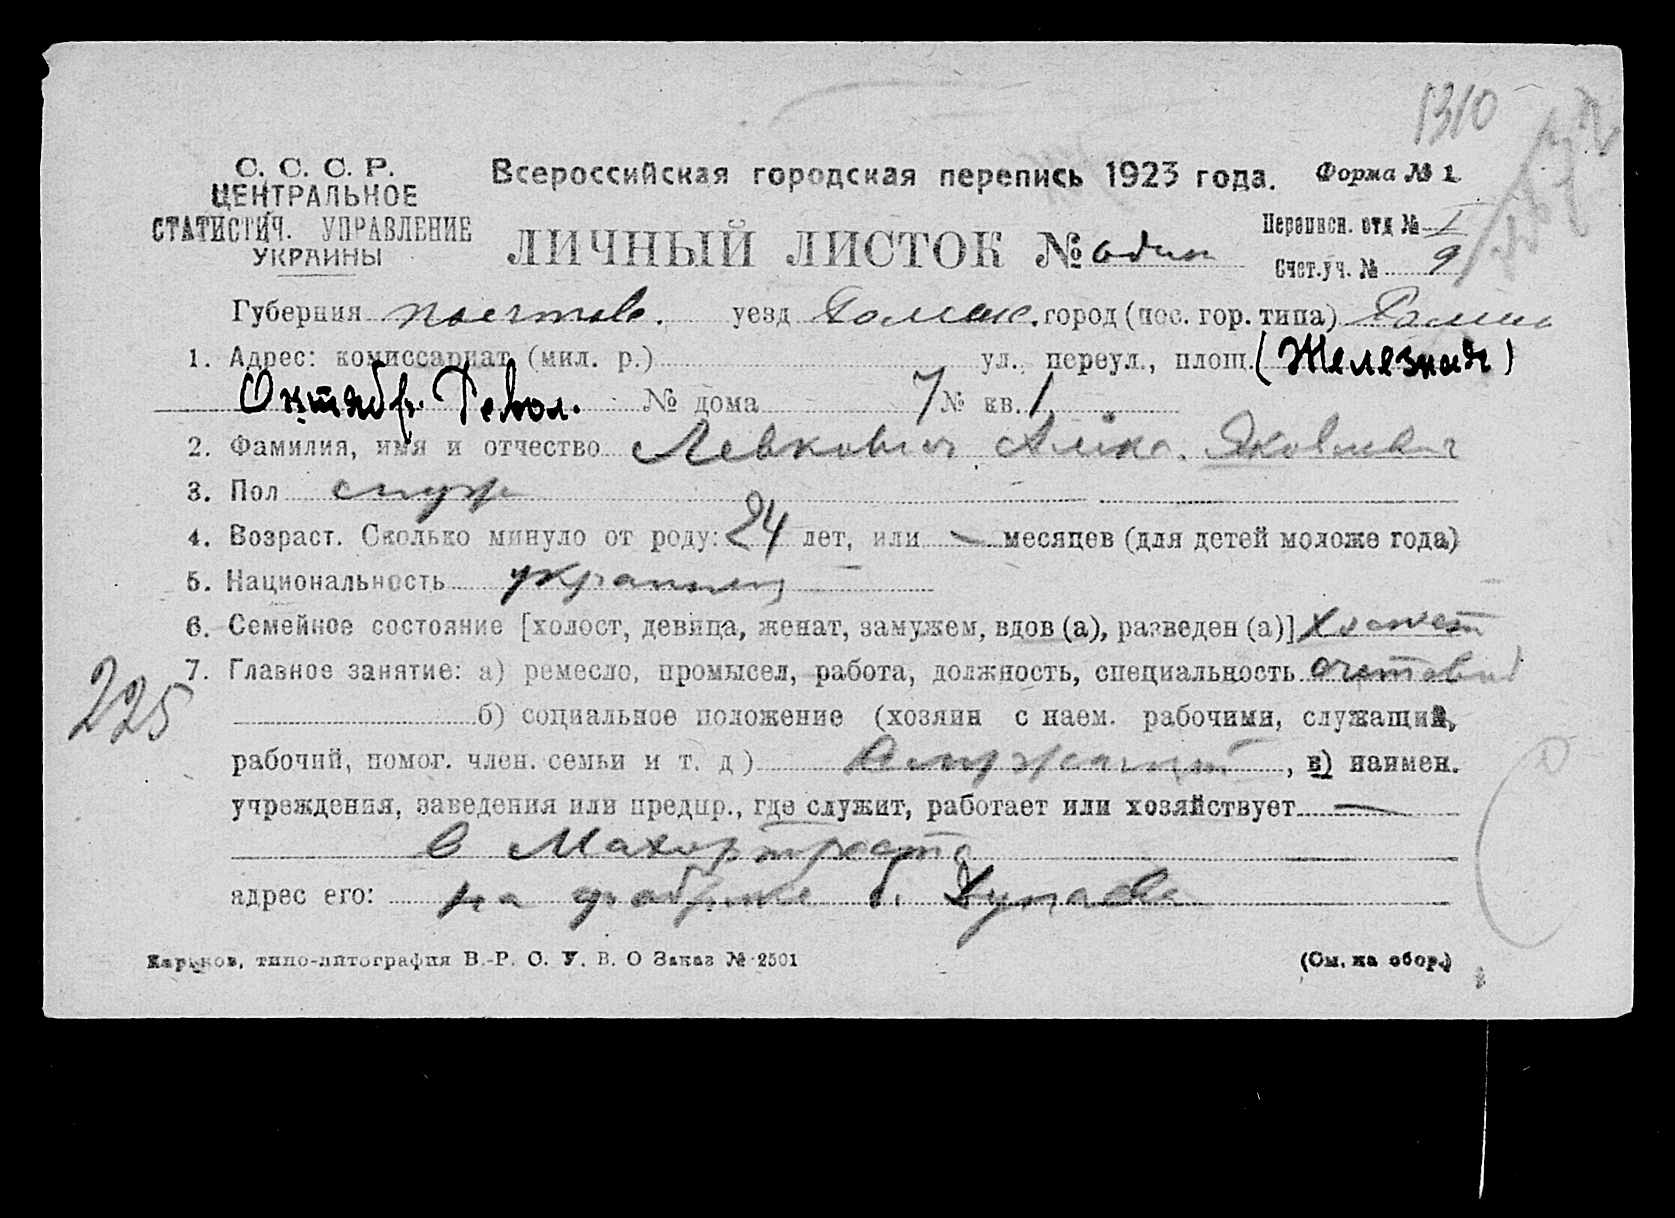 1310
С. С. С. Р.
ЦЕНТРАЛЬНОЕ
СТАТИСТИЧ. УПРАВЛЕНИЕ
УКРАИНЫ
Всероссийская городская перепись 1923 года.
Форма № 1
ЛИЧНЫЙ ЛИСТОК № один
Переписн. отд № I
Счет.уч. № 9
Губерния Полтав. уезд Ромен. город (пос. гор. типа) Ромны
1. Адрес: комиссариат (мил. р.) ул., переул., площ. (Железная)
Октябр. Револ. № дома 7 № кв. 1
2. Фамилия, имя и отчество Левкович Алекс. Яковлевич
3. Пол муж
4. Возраст. Сколько минуло от роду: 24 лет, или — месяцев (для детей моложе года)
5. Национальность украинец
6. Семейное состояние [холост, девица, женат, замужем, вдов (а), разведен (а)] холост
7. Главное занятие: а) ремесло, промысел, работа, должность, специальность счетовод
225
б) социальное положение (хозяин с наем. рабочими, служащий,
рабочий, помог. член. семьи и т. д) Служащий, в) наимен.
учреждения, заведения или предпр., где служит, работает или хозяйствует —
в Махортреста
адрес его: на фабрике б.
Харьков, типо-литография В.-Р. О. У. В. О Заказ № 2501
(См. на обор.)